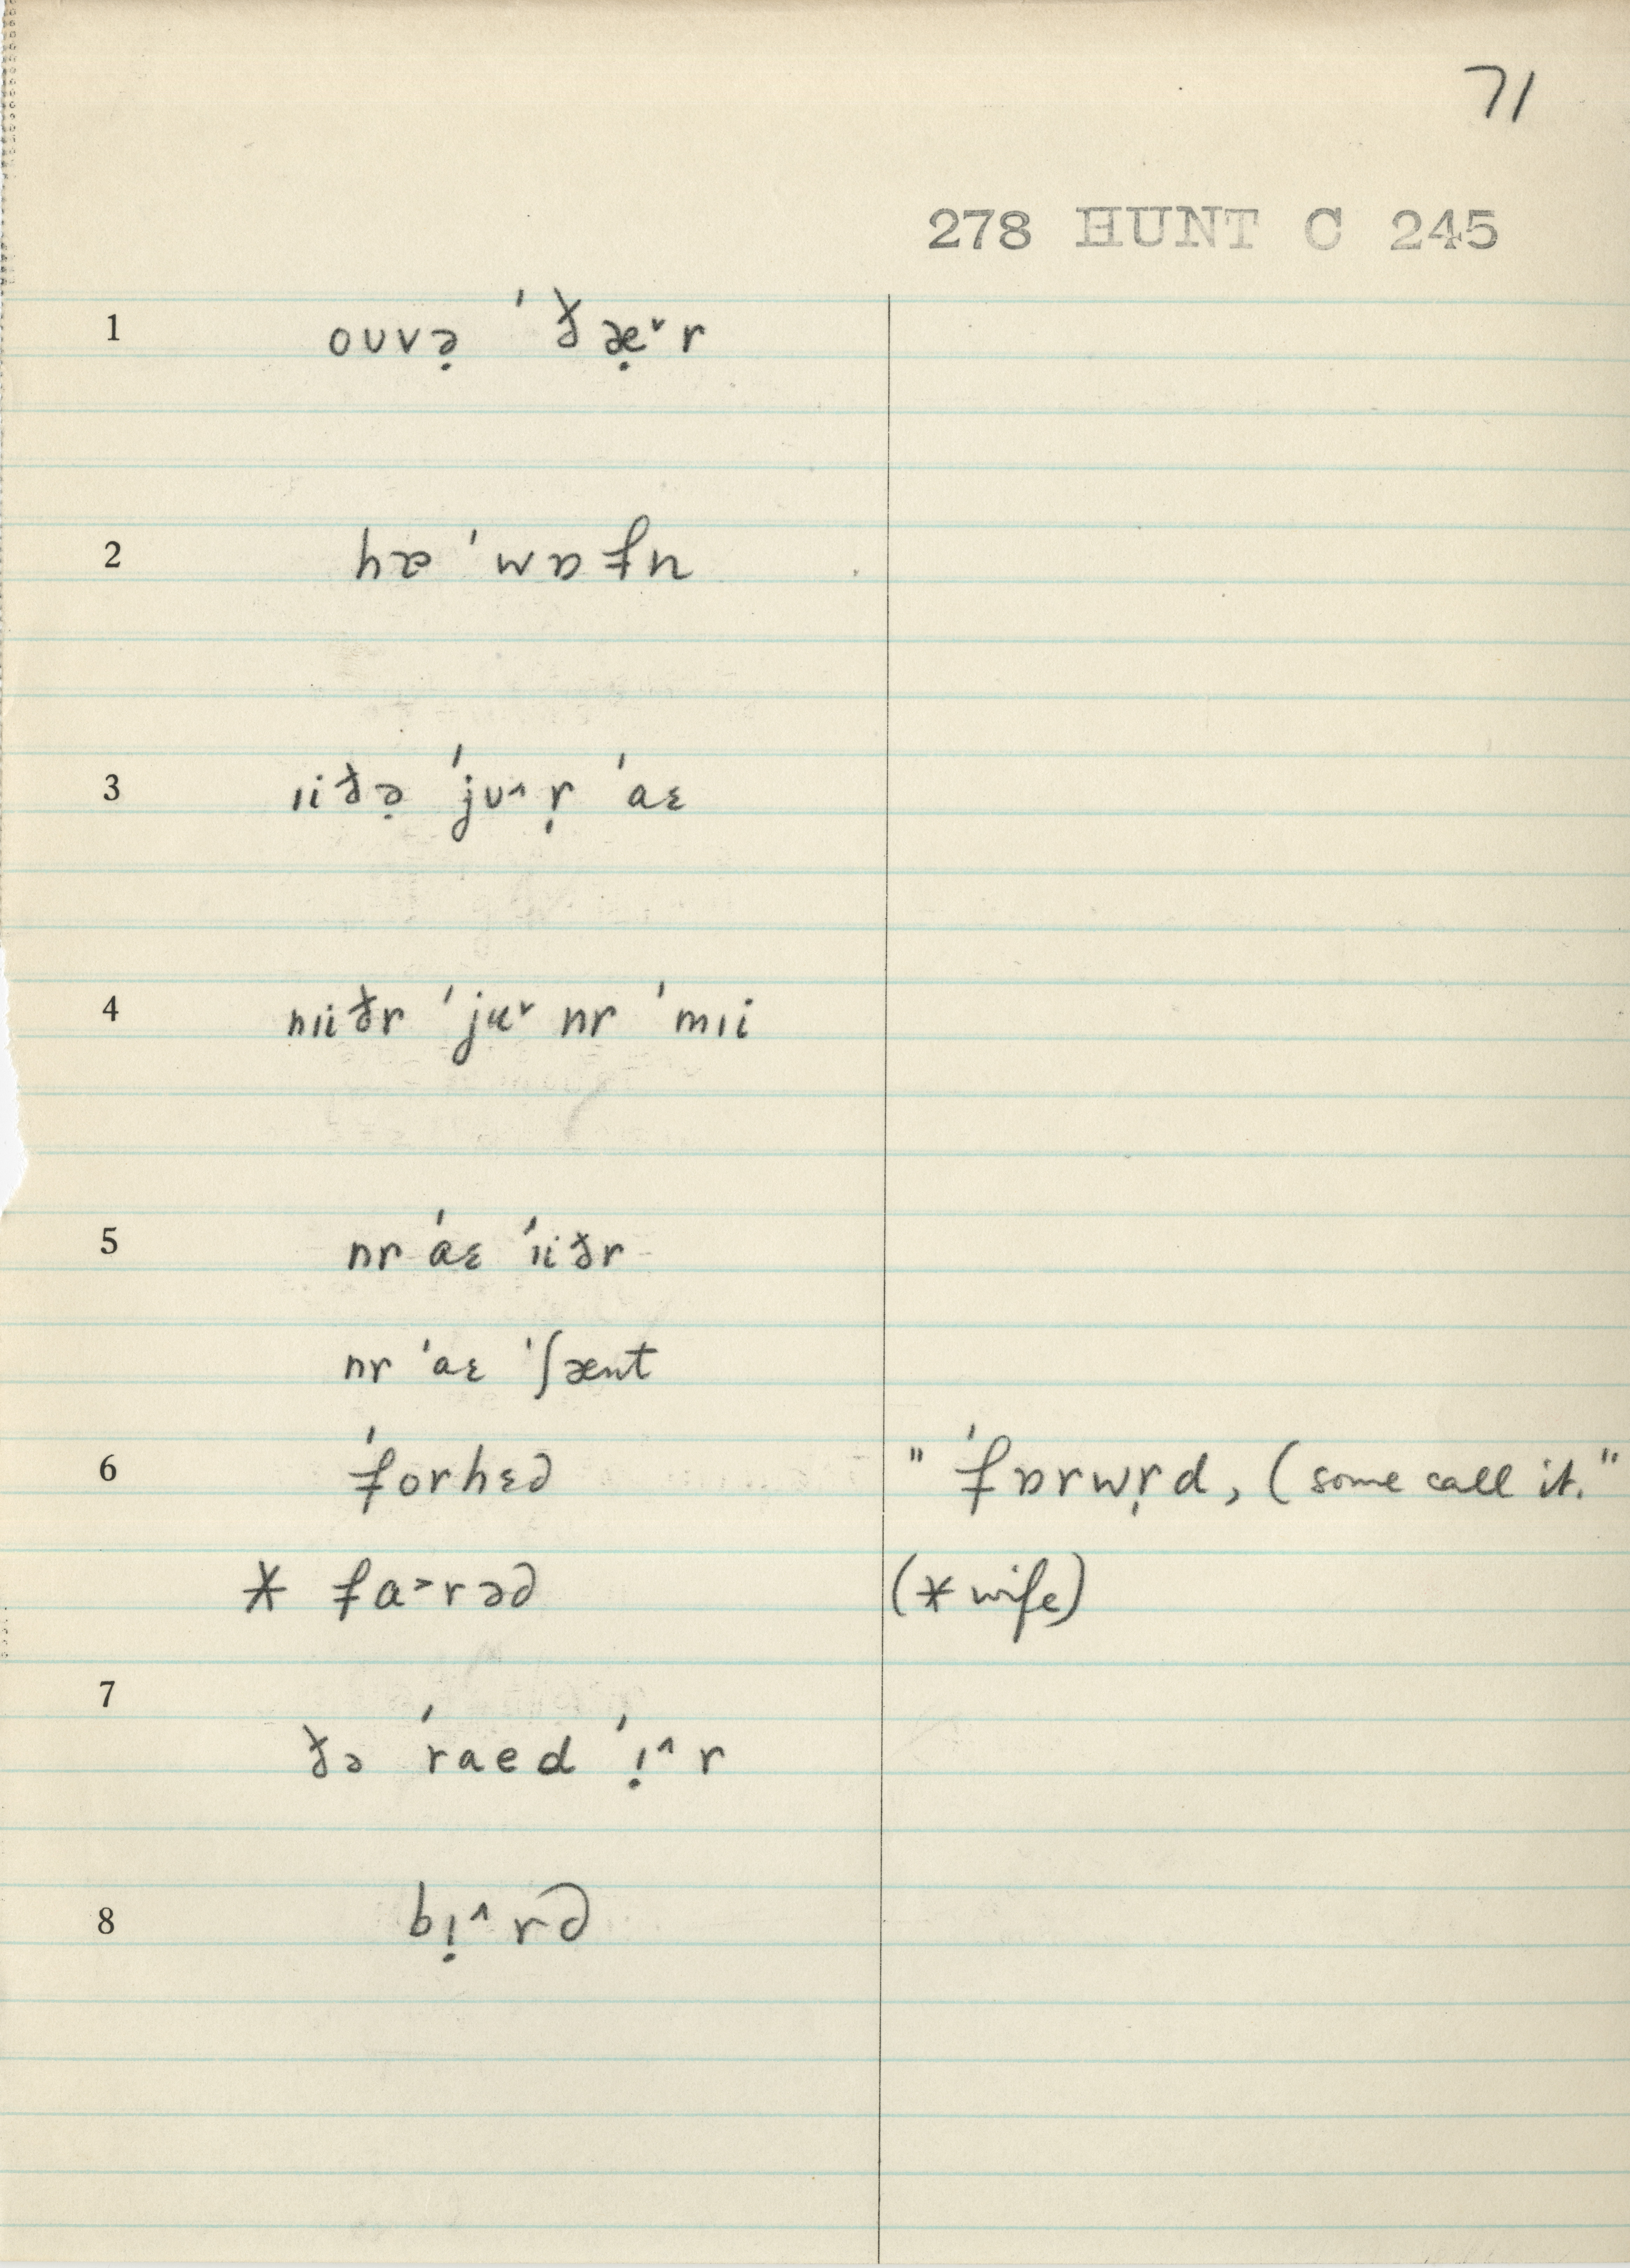 71
278 HUNT C 245
1 ouvə̣ ˈðæ̣˅r
2 hæ ˈwɒfn
3 ɪiðə̣ ˈjʊ˄ṛ ˈaɛ
4 nɪiðr ˈjʉ˅ nr ˈmɪi
5 nr ˈaɛ ˈɪiðr
nr ˈaɛ ˈʃænt
6 ˈforhɛd "ˈfɒrwṛd, (some call it."
* fa˃rəd (* wife)
7
ðə ˈraed ˈɪ̣˄r
8 bɪ̣˄rd